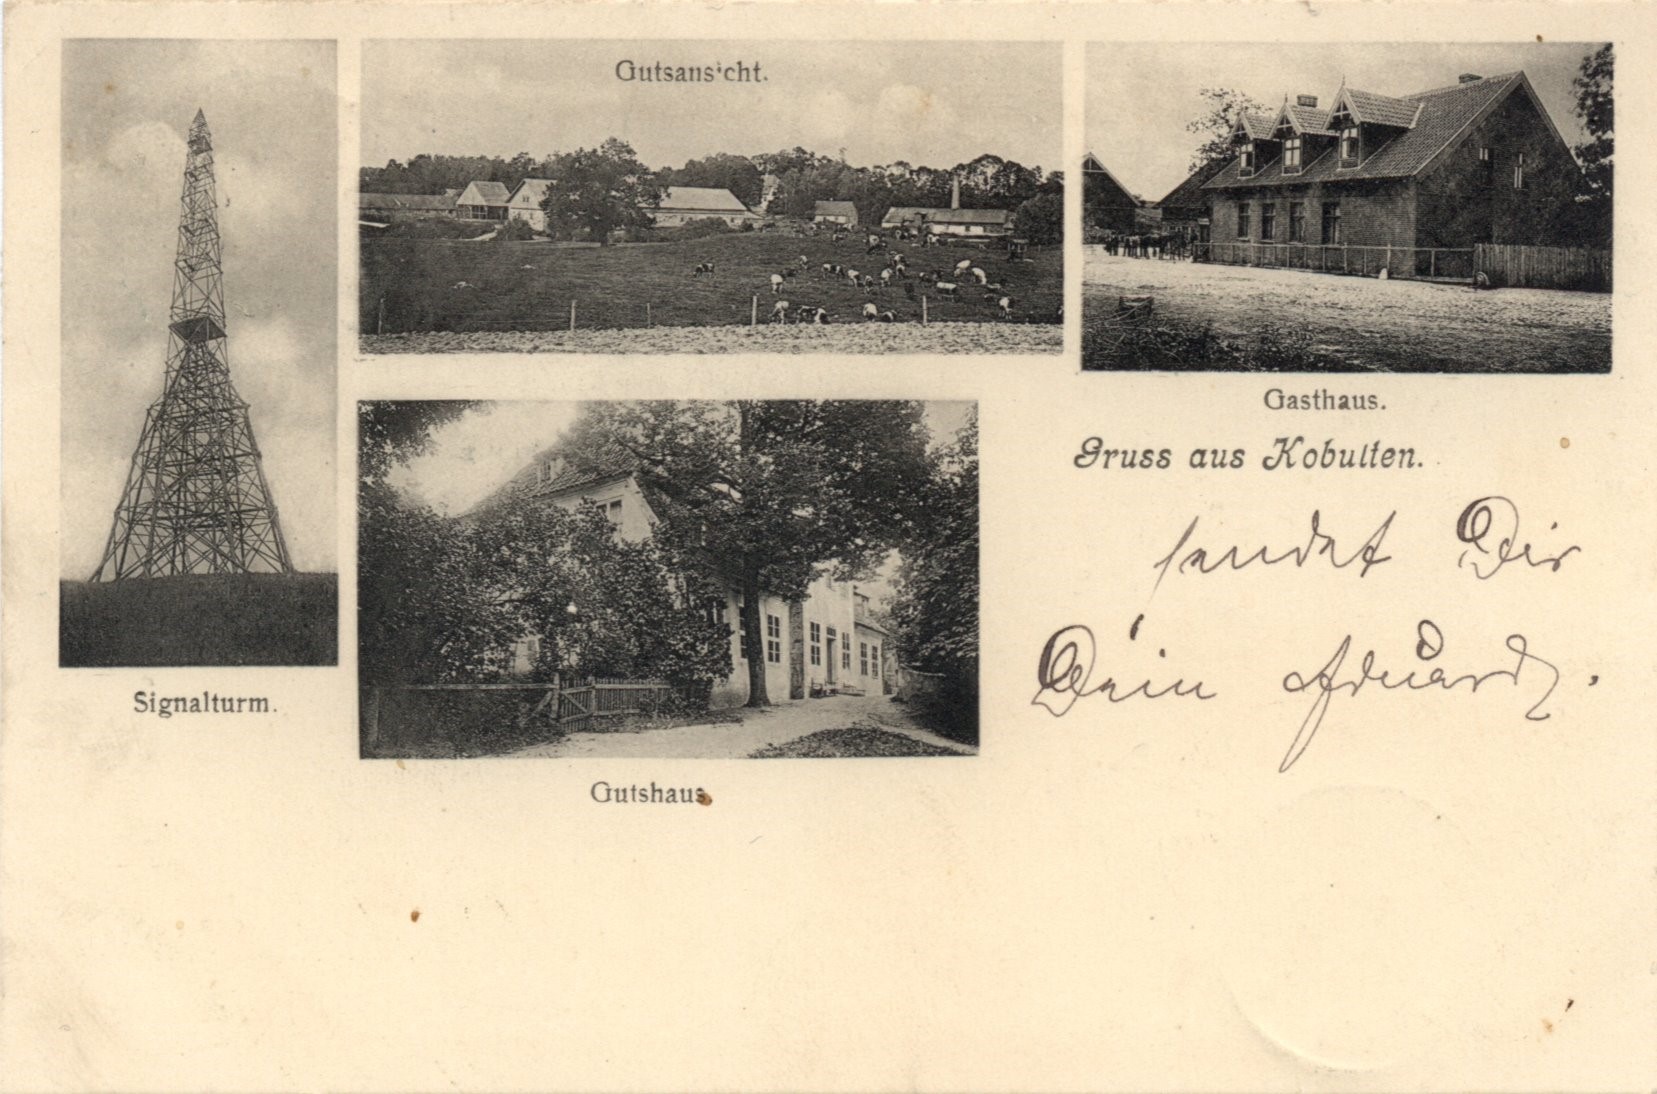 Gutsansicht.
Gasthaus.
Gruss aus Kobulten.
sendet Dir
Dein Eduard.
Signalturm.
Gutshaus.